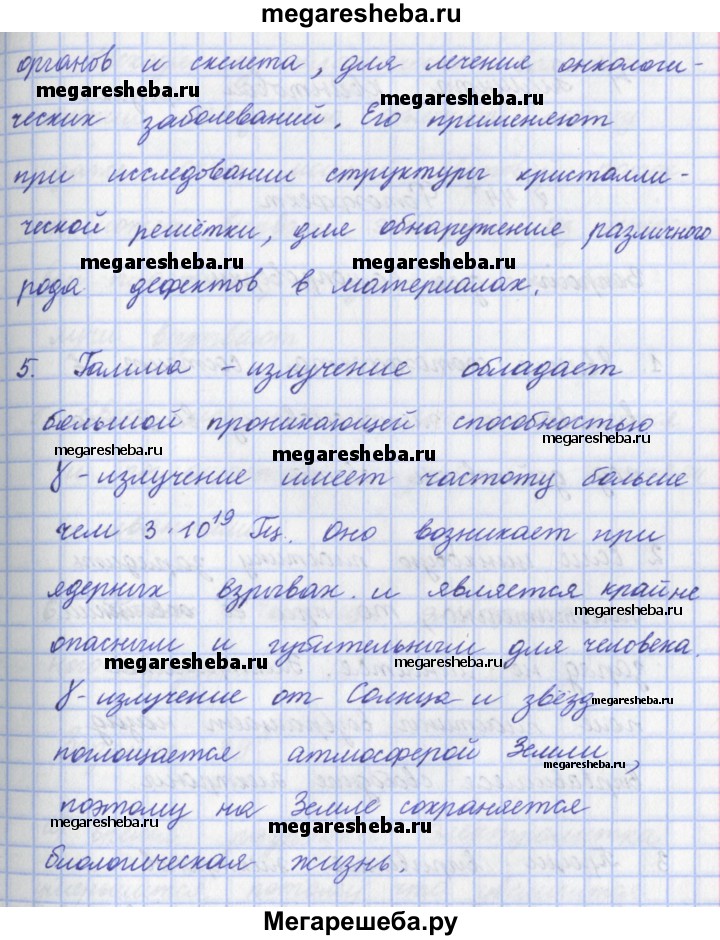 megaresheba.ru
органов и скелета, для лечения онкологи-
megaresheba.ru
megaresheba.ru
ческих заболеваний. Его применяют
при исследовании структуры кристалли-
ческой решётки, для обнаружения различного
megaresheba.ru
megaresheba.ru
рода дефектов в материалах.
5. Гамма-излучение обладает
большой проникающей способностью
megaresheba.ru
megaresheba.ru
megaresheba.ru
γ-излучение имеет частоту больше
чем 3·10¹⁹ Гц. Оно возникает при
ядерных взрывах и является крайне
megaresheba.ru
опасным и губительным для человека.
megaresheba.ru
megaresheba.ru
γ-излучение от Солнца и звёзд
megaresheba.ru
поглощается атмосферой Земли,
megaresheba.ru
поэтому на Земле сохраняется
megaresheba.ru
megaresheba.ru
биологическая жизнь.
Мегарешеба.ру